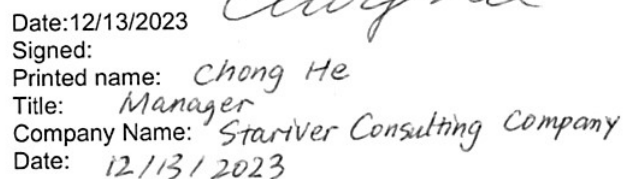 Date:12/13/2023
Signed:
Printed name: Chong He
Title: Manager
Company Name: Stariver Consulting Company
Date: 12/13/2023